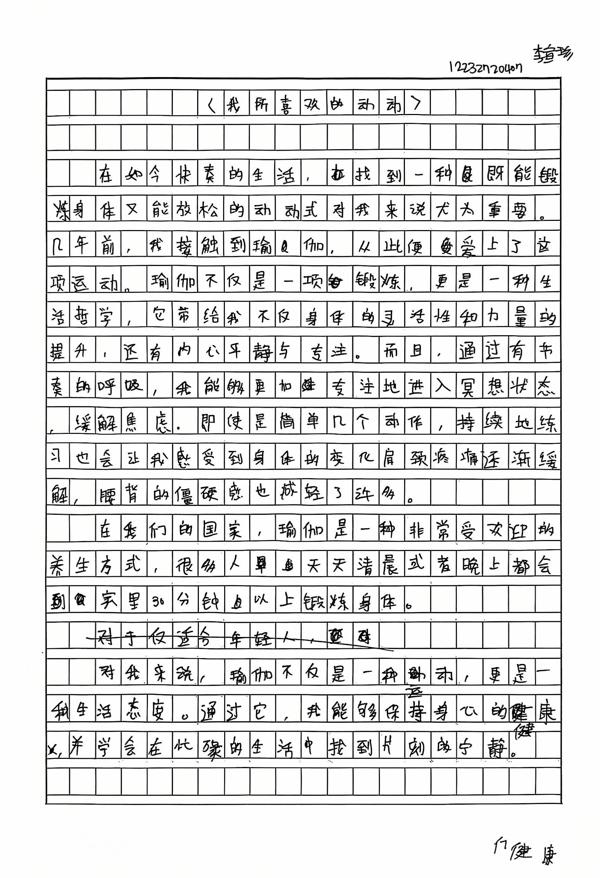 12232720407
《我所喜欢的动动》
在如今快奏的生活，找到一种既能锻
炼身体又能放松的动动式对我来说尤为重要。
几年前，我接触到瑜伽，从此便爱上了这
项运动。瑜伽不仅是一项锻炼，更是一种生
活哲学，它带给我不仅身体的灵活性和力量的
提升，还有内心平静与专注。而且，通过有节
奏的呼吸，我能够更加专注地进入冥想状态
，缓解焦虑。即使是简单几个动作，持续地练
习也会让我感受到身体的变化肩颈疼痛逐渐缓
解，腰背的僵硬感也减轻了许多。
在我们的国家，瑜伽是一种非常受欢迎的
养生方式，很多人天天清晨或者晚上都会
到实里30分钟以上锻炼身体。
对于仅适合年轻人，
对我来说，瑜伽不仅是一种运动，更是一
种生活态度。通过它，我能够保持身心的健康
，并学会在忙碌的生活中找到片刻的宁静。
健康